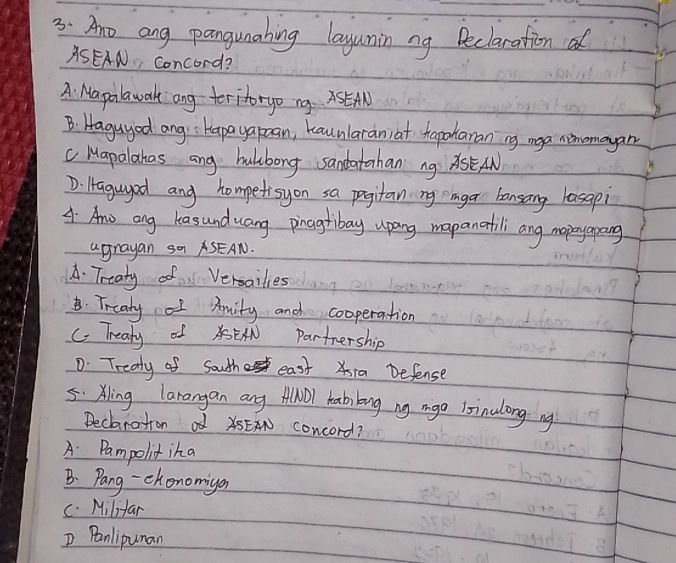 3. Ano ang pangunahing layunin ng Declaration of
ASEAN concord?
A. Mapalawak ang teritoryo ng ASEAN
B. Haguyod ang kapayapaan, kaunlaran at kapakanan ng mga
C Mapalakas ang hukbong sandatahan ng ASEAN
D. Itaguyod ang kompetisyon sa pagitan ng mga bansang kasapi
4. Ano ang kasunduang pinagtibay upang mapanatili ang mapayapang
ugnayan sa ASEAN.
A. Treaty of Versailies
B. Treaty of Amity and cooperation
C. Treaty of ASEAN Partnership
D. Treaty of South east Asia Defense
5. Aling larangan ang HINDI kabilang ng mga isinulong ng
Declaration of ASEAN concord?
A. Pampolitika
B. Pang-ekonomiya
C. Militar
D Panlipunan